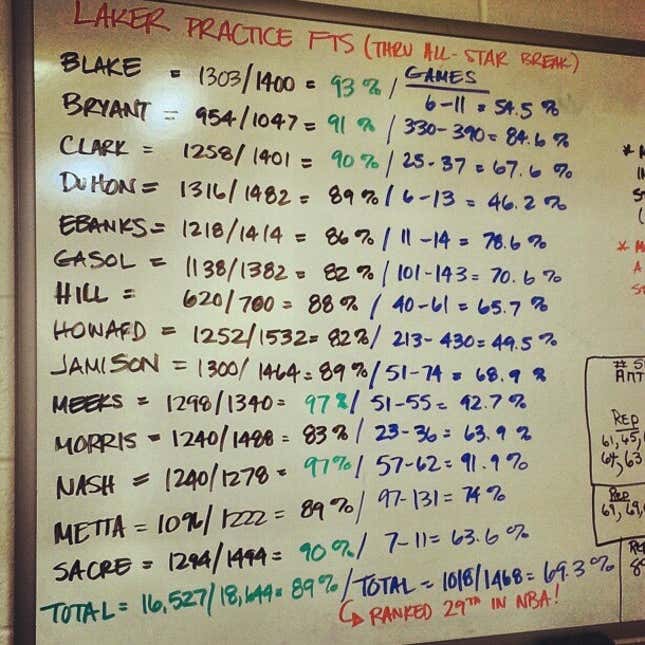 LAKER PRACTICE FTS (THRU ALL-STAR BREAK)
GAMES
BLAKE = 1303/1400 = 93% / 6-11 = 54.5%
BRYANT = 954/1047 = 91% / 330-390 = 84.6%
CLARK = 1258/1401 = 90% / 25-37 = 67.6%
DUHON = 1316/1482 = 89% / 6-13 = 46.2%
EBANKS = 1218/1414 = 86% / 11-14 = 78.6%
GASOL = 1138/1382 = 82% / 101-143 = 70.6%
HILL = 620/700 = 88% / 40-61 = 65.7%
HOWARD = 1252/1532 = 82% / 213-430 = 49.5%
JAMISON = 1300/1464 = 89% / 51-74 = 68.9%
MEEKS = 1298/1340 = 97% / 51-55 = 92.7%
MORRIS = 1240/1488 = 83% / 23-36 = 63.9%
NASH = 1240/1278 = 97% / 57-62 = 91.9%
METTA = 1096/1222 = 89% / 97-131 = 74%
SACRE = 1294/1444 = 90% / 7-11 = 63.6%
TOTAL = 16,527/18,644 = 89% / TOTAL = 1018/1468 = 69.3%
RANKED 29TH IN NBA!
# S
ANT
REP
61, 65,
64, 63
REP
69, 69,